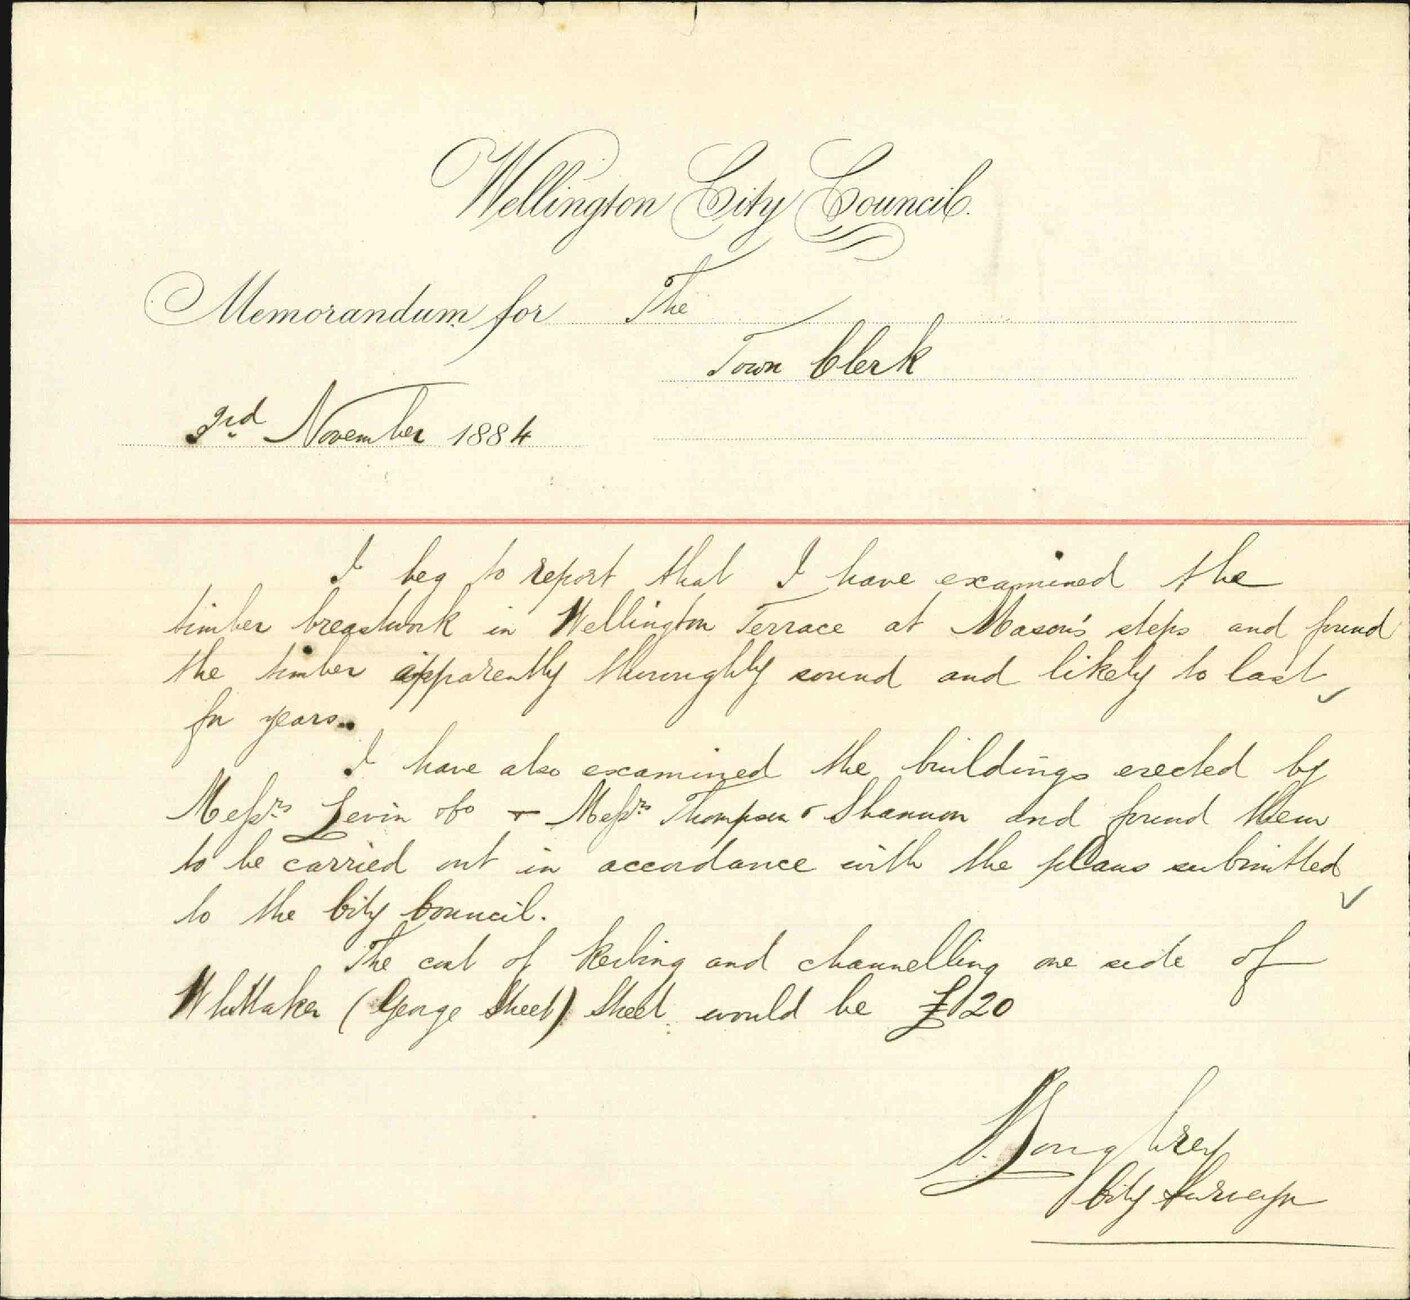 Wellington City Council.
Memorandum for The
Town Clerk
3rd November 1884
I beg to report that I have examined the
timber breastwork in Wellington Terrace at Mason's steps and found
the timber apparently thoroughly sound and likely to last
for years.
I have also examined the buildings erected by
Messrs Levin & Co & Messrs Thompson & Shannon and found them
to be carried out in accordance with the plans submitted
to the City Council.
The cost of kerbing and channelling one side of
Whittaker (George Street) Street would be £120
City Surveyor